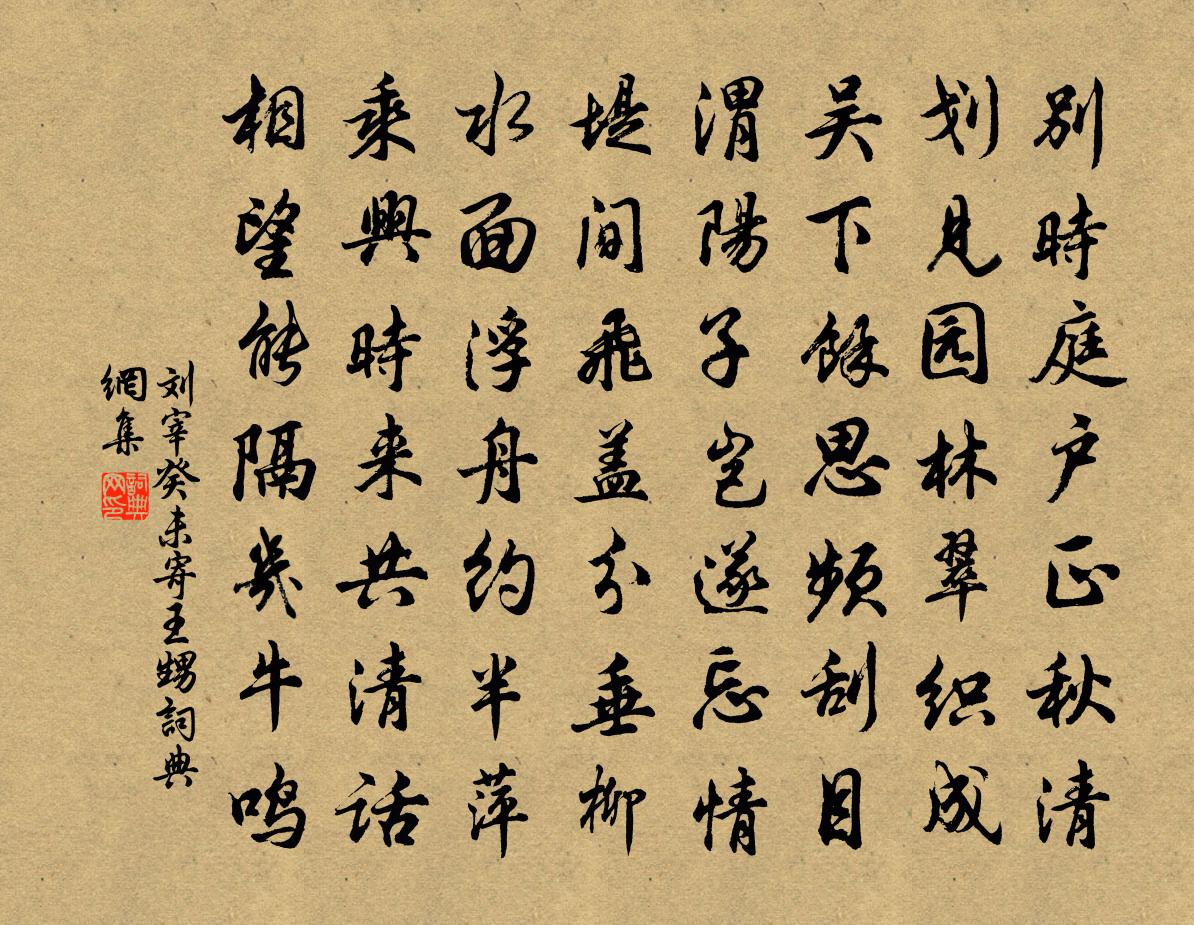 别時庭户正秋清
划見园林翠织成
吴下餘思频刮目
渭陽子岂遂忘情
堤间飛盖分垂柳
水面浮舟约半萍
乘興時来共清话
相望能隔幾牛鸣
刘宰癸未寄王甥詞典
網集
詞典网印